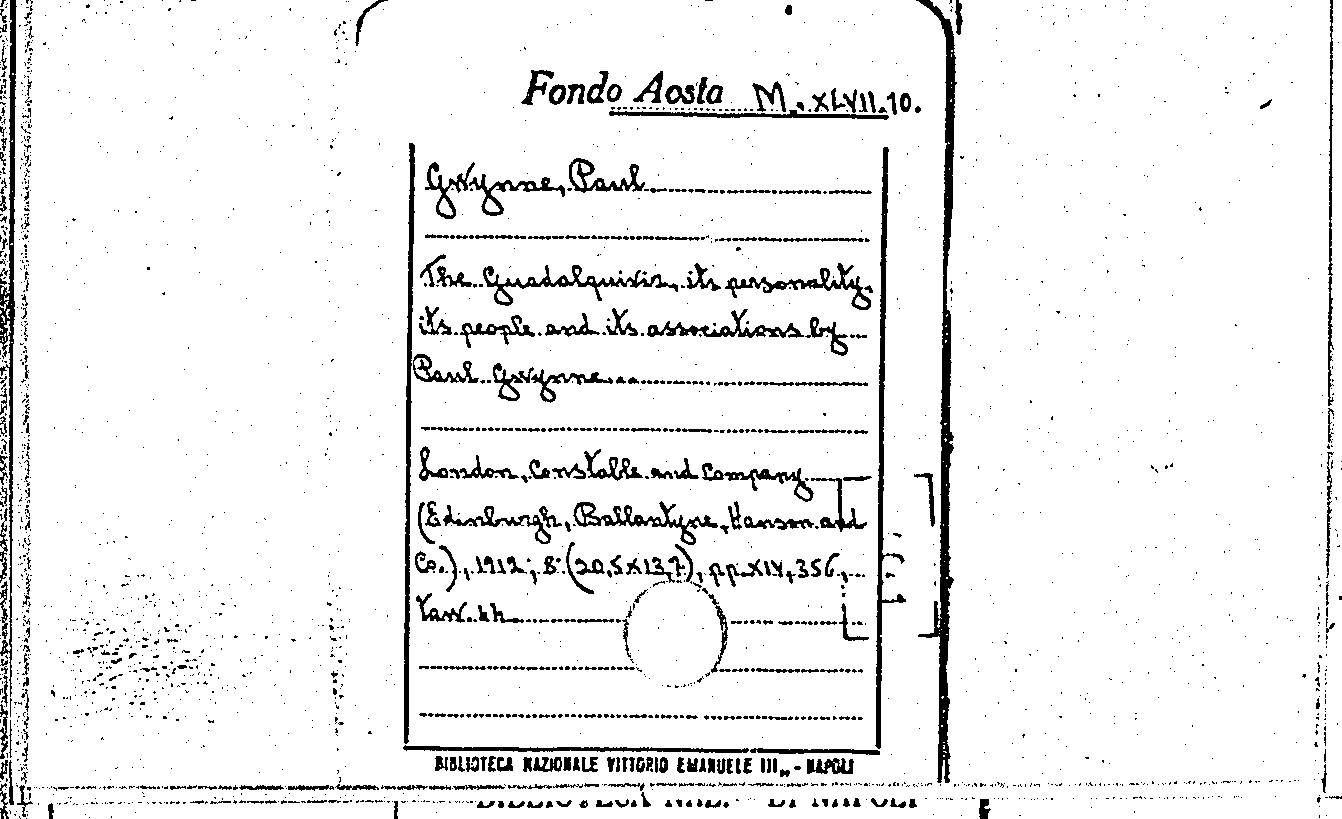 Fondo Aosta M. XLVII.10.
Gwynne, Paul
The Guadalquivir, its personality,
its people and its associations by
Paul Gwynne...
London, Constable and Company
(Edinburgh, Ballantyne, Hanson and
Co.), 1912; 8° (20,5x13,7), pp. XIV, 356,
tav.
BIBLIOTECA NAZIONALE VITTORIO EMANUELE III„ - NAPOLI